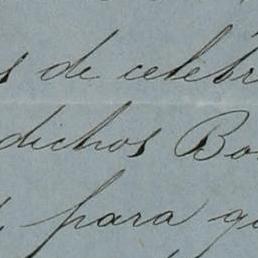 s de celebr
dichos Bo
para qu